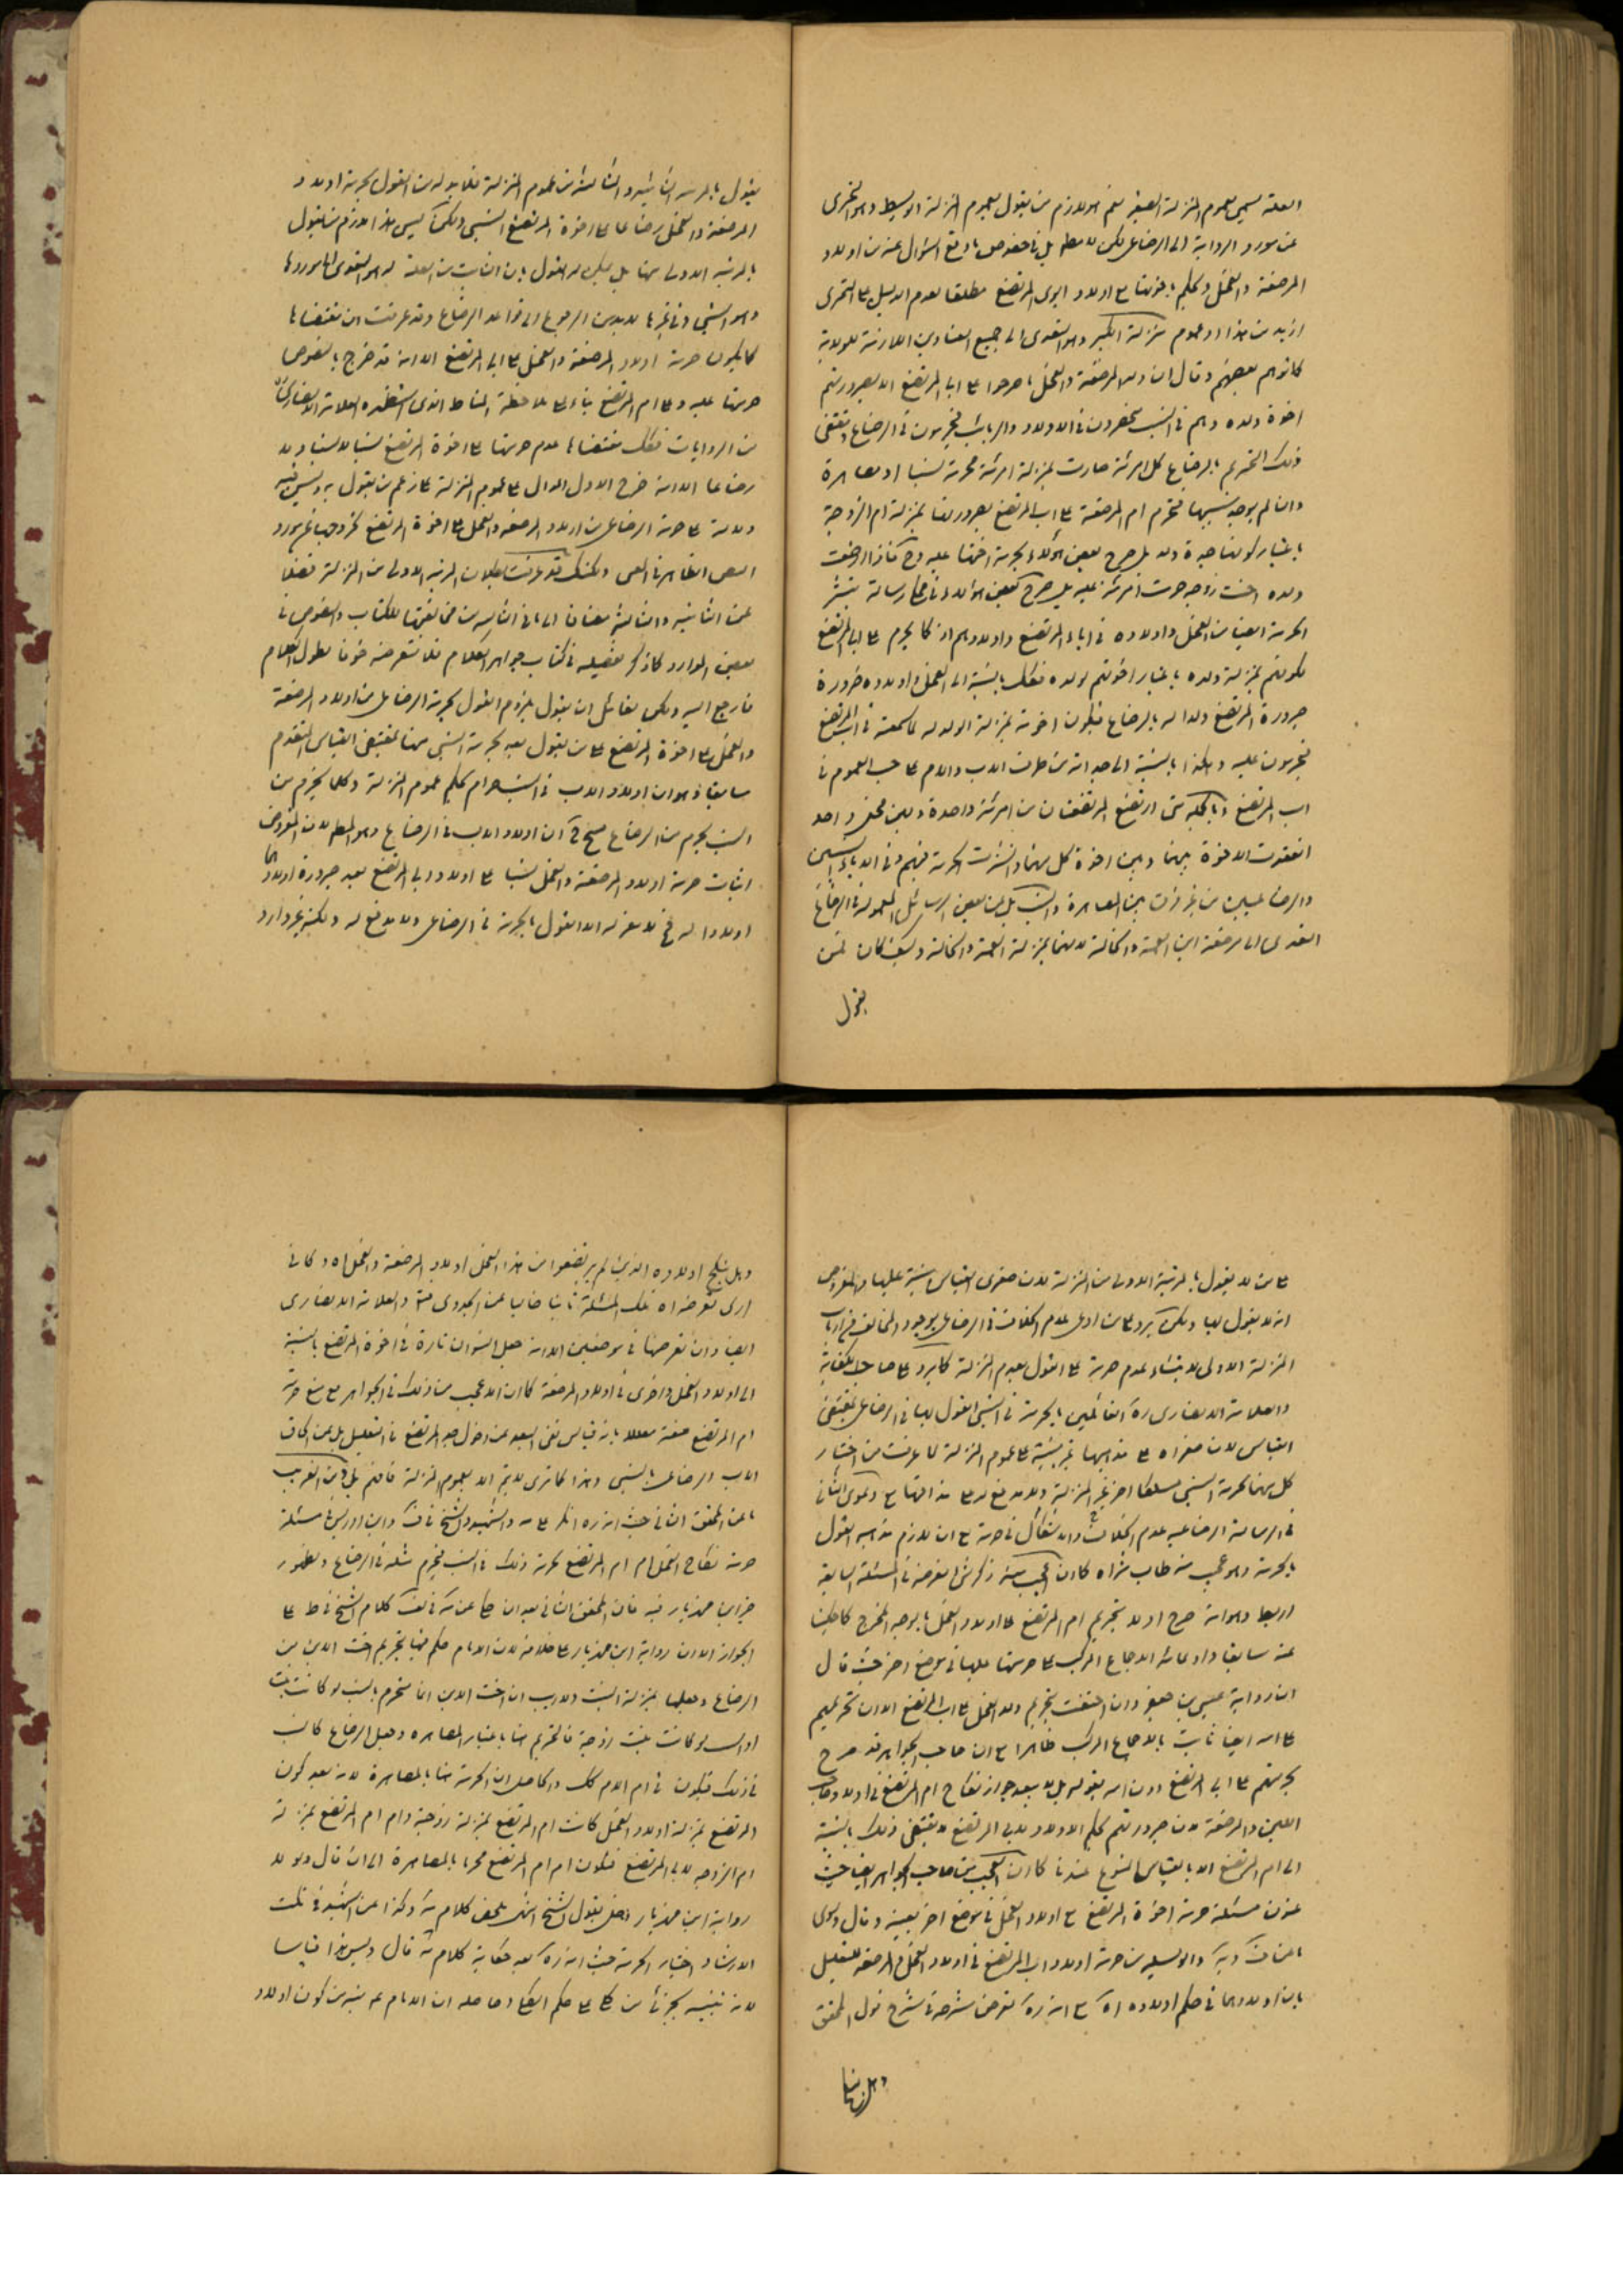 العلة يسمى بعموم المنزلة الصغير نعم هو لازم من يقول بعموم المنزلة الوسيط وهو التحرى
عن مورد الرواية الى الرضاعى لكن لا مطلقا بل في خصوص ما وقع السؤال عنه من اولاد
المرضعة والفحل وحكم باخوتها مع اولاد ابوى المرتضع مطلقا لعدم الدليل على التحرى
ازيد من هذا او عموم منزلة الكبير وهو التعدى الى جميع العناوين اللازمة للولادية
كما توهم بعضهم وقال ان ولد المرضعة والفحل ما حرموا على اب المرتضع الا لصيرورتهم
اخوة ولده وهم في النسب منحصرون في الاولاد والربائب فيحرمون في الرضاع ومقتضى
ذلك التحريم بالرضاع كل امرئة صارت بمنزلة امرئة محرمة نسبا او مصاهرة
وان لم يوجد سببها فتحرم ام المرضعة على اب المرتضع لصيرورتها بمنزلة ام الزوجة
باعتبار كونها جدة ولده بل صرح بعض هؤلاء بحرمة اختها عليه
ولده اخت زوجه حرمت المرئة عليه بل صرح بعض هؤلاء في رسالة بنشر
الحرمة ايضا من الفحل واولاده في اباء المرتضع واولادهم اذ كما يحرم على اب المرتضع
لكونهم بمنزلة ولده باعتبار اخوتهم لولده فكك بالنسبة الى الفحل واولاده ضرورة
صيرورة المرتضع ولدا له بالرضاع فيكون اخوته بمنزلة الولد له كما سمعته في اب المرتضع
فيحرمون عليه وهكذا بالنسبة الى جداته من طرف الاب والام على حسب العموم في
اب المرتضع وبالجملة متى ارتضع المرتضعان من امرئة واحدة ولبن فحل واحد
انعقدت الاخوة بينهما وبين اخوة كل منهما وانتشرت الحرمة فيهم وفي الاباء النسبيين
والرضاعيين من غير فرق بين المصاهرة والنسب بل عن بعض الرسائل المعمولة في الرضاع
التعدى الى مرضعة ابن العمة والخالة لانهما بمنزلة العمة والخالة وكيف كان فمن
يقول
يقول بالمرتبة الثانية والثالثة من عموم المنزلة فلا بد له من القول بحرمة اولاد
المرضعة والفحل رضاعا على اخوة المرتضع النسبى ولكن ليس هذا لازم من يقول
بالمرتبة الاولى منها بل يمكن له القول بان الثابت من العلة هو التعدى الى موردها
وهو النسبى وفي غيرها لا بد من الرجوع الى قواعد الرضاع وقد عرفت ان مقتضاها
كما يكون حرمة اولاد المرضعة والفحل على اب المرتضع الا انه قد خرج بالنصوص
حرمتها عليه وعلى ام المرتضع بناء على ملاحظة المناط الذى استظهره العلامة الانصارى
من الروايات فكك مقتضاها عدم حرمتها على اخوة المرتضع نسبا لا نسبا ولا
رضاعا الا انه خرج الاول الدال على عموم المنزلة على زعم من يقول به وليس فيه
دلالة على حرمة الرضاعى من اولاد المرضعة والفحل على اخوة المرتضع لخروجها عن مورد
النص الظاهر في النسبى ولكنك قد عرفت بطلان المرتبة الاولى من المنزلة فضلا
عن الثانية والثالثة مضافا الى ما في الثالثة من مخالفتها للكتاب والنصوص في
بعض الموارد كما ذكر تفصيله في كتاب جواهر الكلام فلا نتعرضه خوفا لطول الكلام
فارجع اليه ولكن لقائل ان يقول بلزوم القول بحرمة الرضاعى من اولاد المرضعة
والفحل على اخوة المرتضع على من يقول بعد بحرمة النسبى منها بمقتضى القياس المتقدم
سابقا وهو ان اولاد الاب في النسب حرام بحكم عموم المنزلة وكلما يحرم من
النسب يحرم من الرضاع فينتج ان اولاد الاب في الرضاع وهو المطلوب لان المفروض
اثبات حرمة اولاد المرضعة والفحل نسبا على اولاد اب المرتضع بعد صيرورة اولادهما
اولادا له فح لا مفر له الا القول بالحرمة في الرضاعى ولا مدفع له ولكنه غير وارد
على من لا يقول بالمرتبة الاولى من المنزلة لان صغرى القياس مبنية عليها والمفروض
انه لا يقول بها ولكن يرد على من ادعى عدم الخلاف في الرضاعى بوجود المخالف في ارباب
المنزلة الاولى لابتناء عدم حرمته على القول بعدم المنزلة كما يرد على صاحب الكفاية
والعلامة الانصارى ره القائلين بالحرمة في النسبى القول بها في الرضاعى بمقتضى
القياس لان صغراه على مذهبهما غير مبنية على عموم المنزلة لما عرفت من اختيار
كل منهما لحرمة النسبى مسلكا اخر غير المنزلة ولا مدفع له على مذاقهما مع دعوى الثانى
في الرسالة الرضاعية عدم الخلاف والاشكال في حرمته مع ان لازم مذهبه القول
بالحرمة وهو عجيب منه طاب ثراه كما ان العجب منه ذكر شئ تعرضه في المسئلة السابقة
اربعا وهو انه صرح اولا بتحريم ام المرتضع على اولاد الفحل بالوجه المخرج كما حكينا
عنه سابقا وادعائه الاجماع المركب على حرمتها عليها في موضع اخر حيث قال
ان رواية عيسى بن جعفر وان اختصت بتحريم ولد الفحل على اب المرتضع الا ان تحريمهم
على امه ايضا ثابت بالاجماع المركب ظاهرا مع ان صاحب الجواهر قد صرح
بحرمتهم على اب المرتضع دون امه بقوله بل لا يبعد جواز نكاح ام المرتضع في اولاد صاحب
اللبن والمرضعة لان صيرورتهم بحكم الاولاد لاب المرتضع لا يقتضى ذلك بالنسبة
الى ام المرتضع الا بالقياس الممنوع عندنا كما ان العجب من صاحب الجواهر ايضا حيث
عنون مسئلة حرمة اخوة المرتضع مع اولاد الفحل في موضع اخر بعينه وقال وحكى
عن ف ويه والوسيلة من حرمة اولاد اب المرتضع في اولاد الفحل والمرضعة للتعليل
بان اولادهما في حكم اولاده اه مع انه ره تعرض شرحه في شرح قول المحقق
وهل ينكح
وهل ينكح اولاده الذين لم يرتضعوا من هذا الفحل اولاد المرضعة والفحل اه وكانى
ارى تعرضه اه تلك المسئلة ثانيا خاليا عن الجدوى منه والعلامة الانصارى
ايضا وان تعرضها في موضعين الا انه جعل العنوان تارة في اخوة المرتضع بالنسبة
الى اولاد الفحل واخرى في اولاد المرضعة كما ان الاعجب من ذلك في الجواهر مع منع حرمة
ام المرتضع عنه معللا بانه قياس نفى البعد عن دخول جد المرتضع في التعليل بل عن الحاق
الاب الرضاعى بالنسبى وهذا كما ترى لا يتم الا بعموم المنزلة فافهم بل ومن الغريب
ما عن المحقق الثانى حيث انه ره انكر على مه والشهيد والشيخ في ف وابن ادريس في مسئلة
حرمة نكاح الفحل ام ام المرتضع لحرمة ذلك في النسب فيحرم مثله في الرضاع ولظهور
خبر ابن مهزيار فيه فان المحقق الثانى بعد ان حكى عن مه في لف كلام الشيخ في ط على
الجواز الا ان رواية ابن مهزيار على خلافه لان الامام حكم فيها بتحريم اخت الابن من
الرضاع وجعلها بمنزلة البنت ولا ريب ان اخت الابن انما تحرم بالنسب لو كانت بنتا
او بالسبب لو كانت بنت زوجة فالتحريم هنا باعتبار المصاهرة وجعل الرضاع كالنسب
في ذلك فيكون في ام الام كك والحاصل ان الحرمة هنا بالمصاهرة لانه بعد كون
المرتضع بمنزلة اولاد الفحل كانت ام المرتضع بمنزلة زوجته وام ام المرتضع بمنزلة
ام الزوجة لاب المرتضع فتكون ام ام المرتضع محرما بالمصاهرة الى ان قال ولولا
رواية ابن مهزيار لقلت بقول الشيخ انتهى ملخص كلام مه وكذا عن الشهيد في نكت
الارشاد اختيار الحرمة حيث انه ره بعد حكاية كلام مه قال وليس هذا قياسا
لانه تنبيه بجزئى من كلى على حكم الكلى وحاصله ان الامام ع نبه من كون اولاد